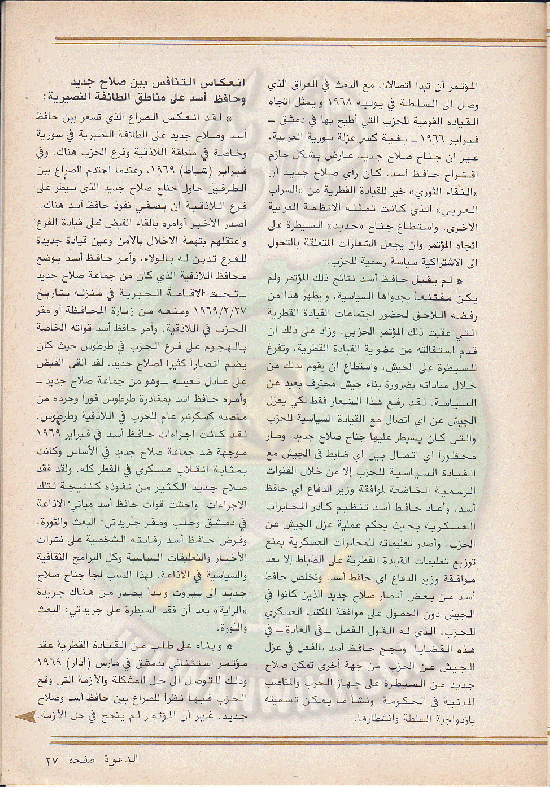 المؤتمر أن تبدأ اتصالات مع البعث في العراق الذي
وصل إلى السلطة في يوليه ١٩٦٨ ويمثل اتجاه
القيادة القومية للحزب التي أطيح بها في دمشق –
فبراير ١٩٦٦ – بغية كسر عزلة سورية العربية.
غير أن جناح صلاح جديد عارض بشكل حازم
اقتراح حافظ أسد. كان رأي صلاح جديد أن
«النقاء الثوري» خير للقيادة القطرية من «السراب
العربي» الذي كانت تمثله الأنظمة العربية
الأخرى. واستطاع جناح «جديد» السيطرة على
اتجاه المؤتمر وأن يجعل الشعارات المتعلقة بالتحول
إلى الاشتراكية سياسة رسمية للحزب.
• لم يقبل حافظ أسد نتائج ذلك المؤتمر ولم
يكن مقتنعا بجدواها السياسية، ويظهر هذا من
رفضه اللاحق لحضور اجتماعات القيادة القطرية
التي عقبت ذلك المؤتمر الحزبي. وزاد على ذلك أن
قدم استقالته من عضوية القيادة القطرية، وتفرغ
للسيطرة على الجيش، واستطاع أن يقوم بذلك من
خلال مناداته بضرورة بناء جيش محترف بعيد عن
السياسة. لقد رفع هذا الشعار فقط لكي يعزل
الجيش عن أي اتصال مع القيادة السياسية للحزب
والتي كان يسيطر عليها جناح صلاح جديد. وصار
محظورا أي اتصال بين أي ضابط في الجيش مع
القيادة السياسية للحزب إلا من خلال القنوات
الرسمية الخاضعة لموافقة وزير الدفاع أي حافظ
أسد. وأعاد حافظ أسد تنظيم كادر المخابرات
العسكرية بحيث يحكم عملية عزل الجيش عن
الحزب. وأصدر تعليماته للمخابرات العسكرية بمنع
توزيع تعليمات القيادة القطرية على الضباط إلا بعد
موافقة وزير الدفاع أي حافظ أسد. وتخلص حافظ
أسد من بعض أنصار صلاح جديد الذين كانوا في
الجيش دون الحصول على موافقة المكتب العسكري
للحزب، الذي له القول الفصل – في العادة – في
هذه القضايا. ونجح حافظ أسد بالفعل في عزل
الجيش عن الحزب من جهة أخرى تمكن صلاح
جديد من السيطرة على جهاز الحزب والمناصب
المدنية في الحكومة. ونشأ ما يمكن تسميته
بازدواجية السلطة وانشطارها.
انعكاس التنافس بين صلاح جديد
وحافظ أسد على مناطق الطائفة النصيرية:
• لقد انعكس الصراع الذي تسعر بين حافظ
أسد وصلاح جديد على الطائفة النصيرية في سورية
وخاصة في منطقة اللاذقية وفرع الحزب هناك. وفي
فبراير (شباط) ١٩٦٩، وعندما احتدم الصراع بين
الطرفين حاول جناح صلاح جديد الذي سيطر على
فرع اللاذقية أن يصفي نفوذ حافظ أسد هناك.
أصدر الأخير أوامره بإلقاء القبض على قيادة الفرع
وعتقلهم بتهمة الاخلال بالأمن وعين قيادة جديدة
للفرع تدين له بالولاء. وأمر حافظ أسد بوضع
محافظ اللاذقية الذي كان من جماعة صلاح جديد
– تحت الاقامة الجبرية في منزله بتاريخ
١٩٦٩/٢/٢٧ ومنعه من زيارة المحافظة أو مقر
الحزب في اللاذقية. وأمر حافظ أسد قواته الخاصة
بالهجوم على فرع الحزب في طرطوس حيث كان
يضم أنصارا كثيرا لصلاح جديد. لقد ألقى القبض
على عادل نعيسه – وهو من جماعة صلاح جديد –
وأمره حافظ أسد بمغادرة طرطوس فورا وجرده من
منصبه كسكرتير عام للحزب في اللاذقية وطرطوس.
لقد كانت إجراءات حافظ أسد في فبراير ١٩٦٩
موجهة ضد جماعة صلاح جديد في الأساس وكانت
بمثابة انقلاب عسكري في القطر كله. ولقد فقد
صلاح جديد الكثير من نفوذه كنتيجة لتلك
الاجراءات. واحتلت قوات حافظ أسد مباني الاذاعة
في دمشق وحلب ومقر جريدتي: البعث والثورة.
وفرض حافظ أسد رقابته الشخصية على نشرات
الأخبار والتعليقات السياسية وكل البرامج الثقافية
والسياسية في الاذاعة. لهذا السبب لجأ جناح صلاح
جديد إلى بيروت وبدأ يصدر من هناك جريدة
«الراية» بعد أن فقد السيطرة على جريدتي: البعث
والثورة.
• وبناء على طلب من القيادة القطرية عقد
مؤتمر استثنائي بدمشق في مارس (آذار) ١٩٦٩
وذلك للتوصل إلى حل للمشكلة والأزمة التي وقع
الحزب فيها نظرا للصراع بين حافظ أسد وصلاح
جديد. غير أن المؤتمر لم ينجح في حل الأزمة.
الدعوة صفحة ٢٧